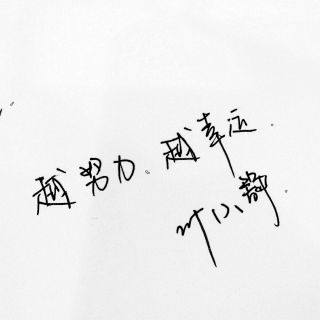 越努力。越幸运.
叶小